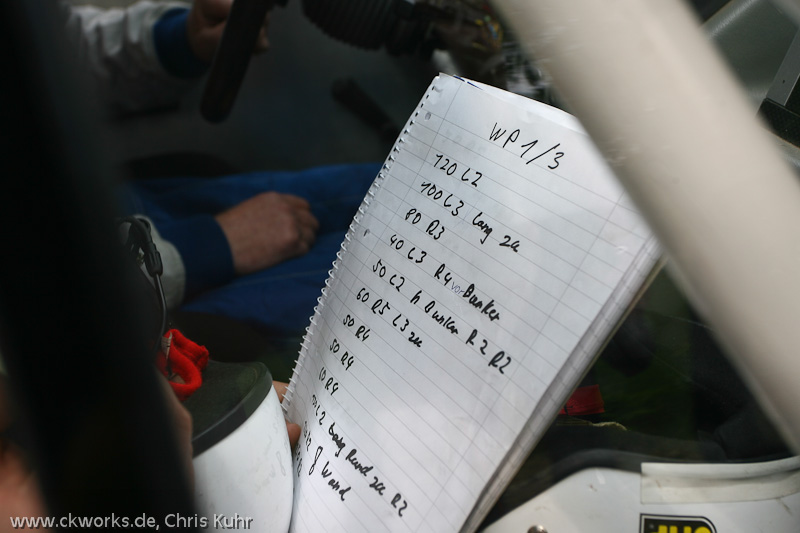 WP 1/3
120 L2
100 L3 lang zu
80 R3
40 L3 R4 vor Bunker
50 L2 h Bunker R2 R2
60 R5 L3 zu
50 R4
50 R4
10 R4
L2 lang Rund zu R2
Wand
www.ckworks.de, Chris Kuhr